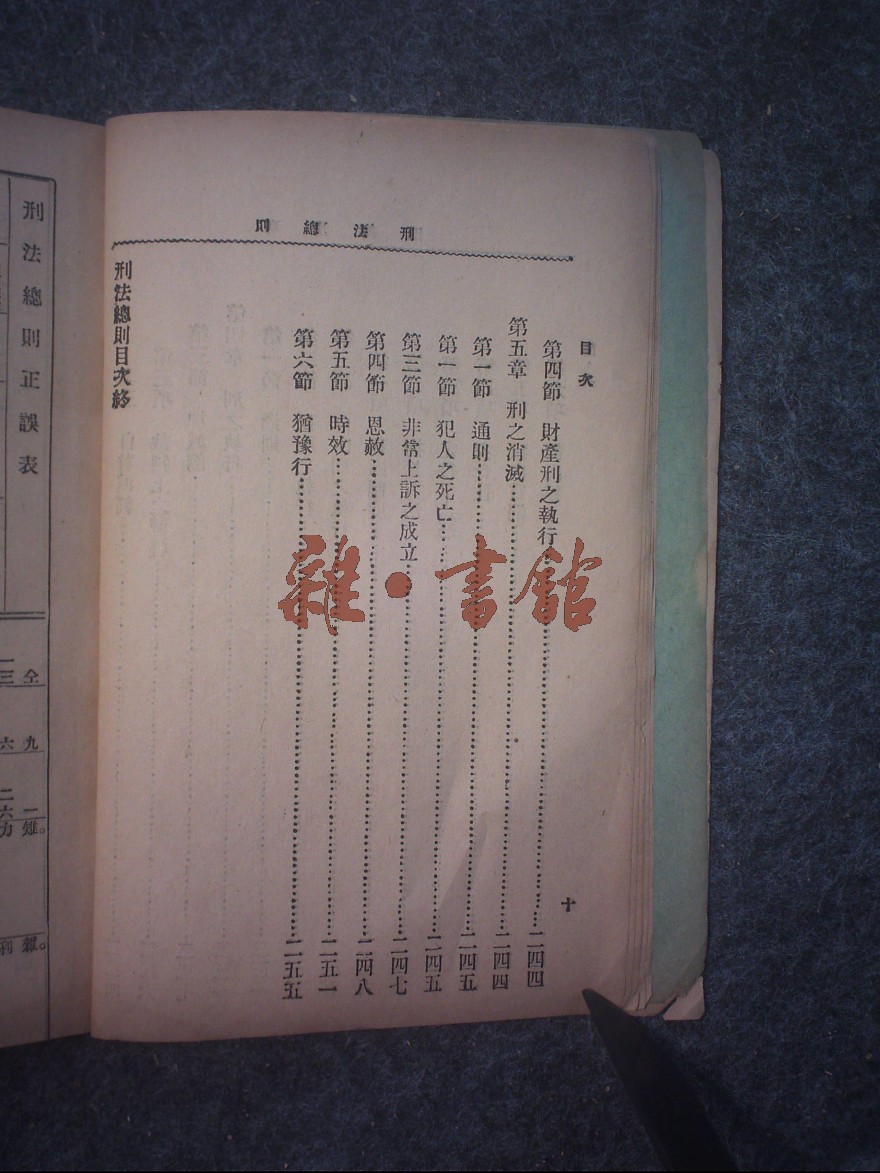 刑法總則
目次
十
第四節　財產刑之執行……二四四
第五章　刑之消滅……二四四
第一節　通則……二四五
第一節　犯人之死亡……二四五
第三節　非常上訴之成立……二四七
第四節　恩赦……二四八
第五節　時效……二五一
第六節　猶豫行……二五五
刑法總則目次終
刑法總則正誤表
全　九　一
一三　六　二六
雜·書館